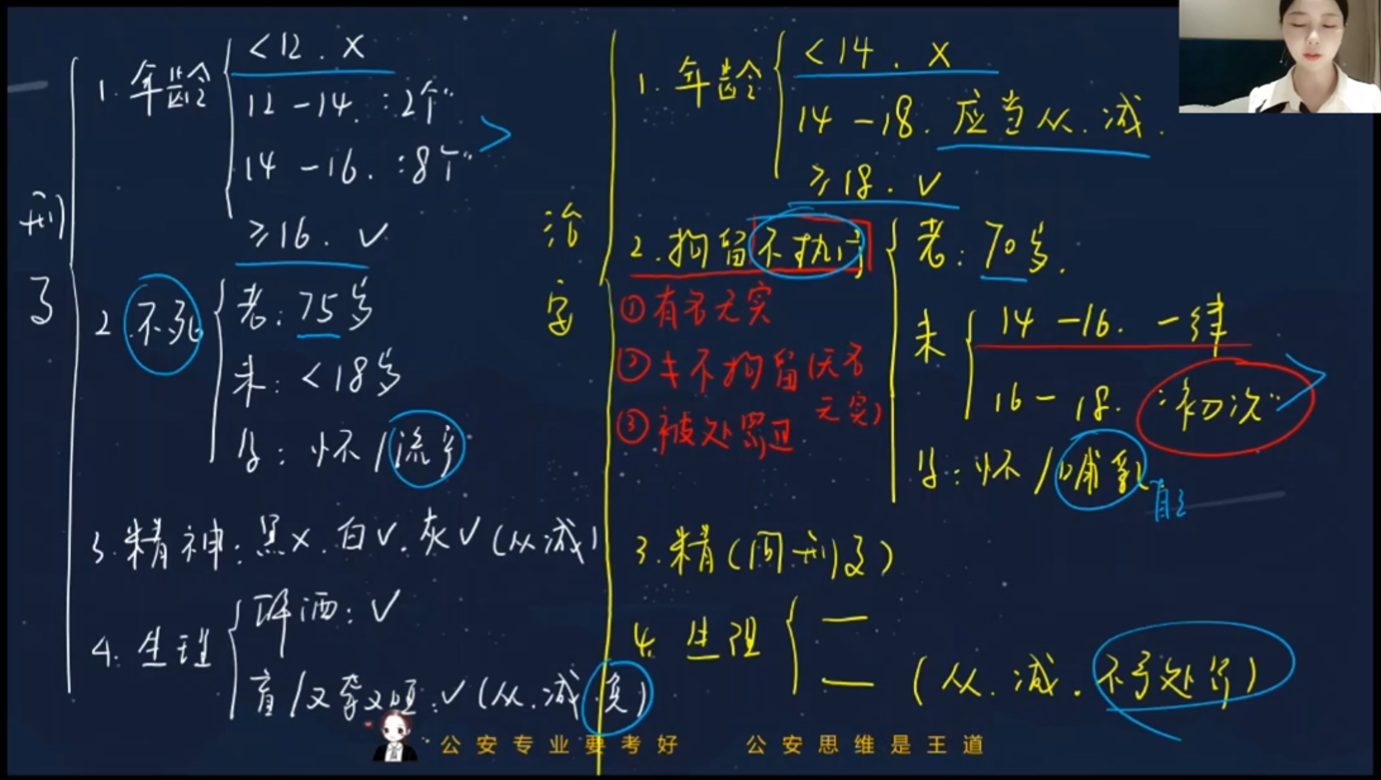 刑
了
1. 年龄
<12. ×
12-14. :2个"
14-16. :8个"
≥16. √
2 不死
老: 75岁
未: <18岁
女: 怀/流产
3. 精神: 黑×. 白√. 灰√ (从减)
4. 生理
醉酒: √
盲/又聋又哑: √ (从. 减. 免)
治
安
1. 年龄
<14. ×
14-18. 应当从. 减.
≥18. √
2. 拘留不执行
①有名无实
②≠不拘留(无名
无实)
③被处罚过
老: 70岁.
未
14-16. 一律
16-18. "初次"
女: 怀/哺乳
自己
3. 精(同刑了)
4. 生理
(从. 减. 不予处罚)
公安专业要考好 公安思维是王道